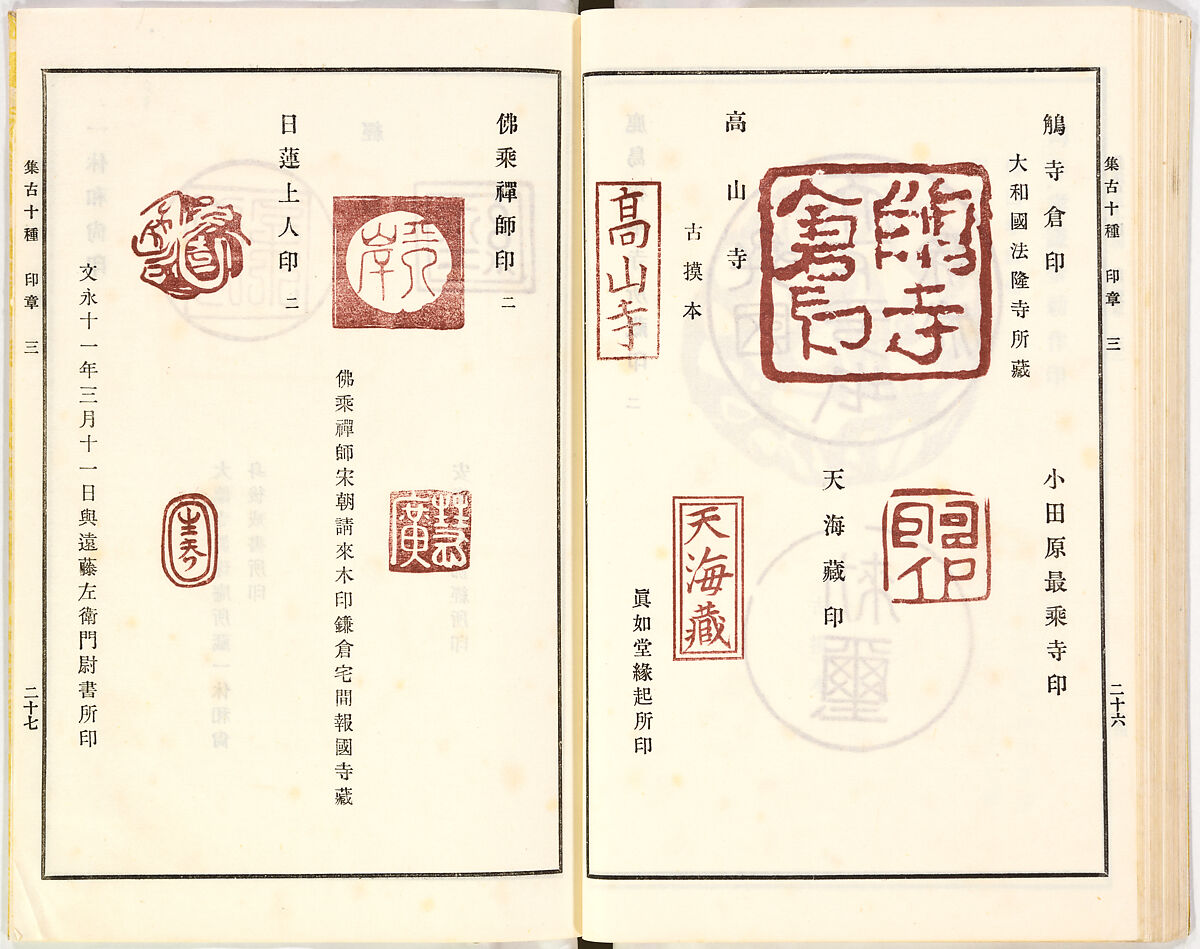 集古十種 印章 三 二十六
鵤寺倉印
大和國法隆寺所藏
鵤寺
倉印
小田原最乘寺印
高山寺
古摸本
髙山寺
天海藏印
天海藏
眞如堂緣起所印
佛乘禪師印 二
慧廣
佛乘禪師宋朝請來木印鎌倉宅間報國寺藏
日蓮上人印 二
文永十一年三月十一日與遠藤左衛門尉書所印
集古十種 印章 三 二十七